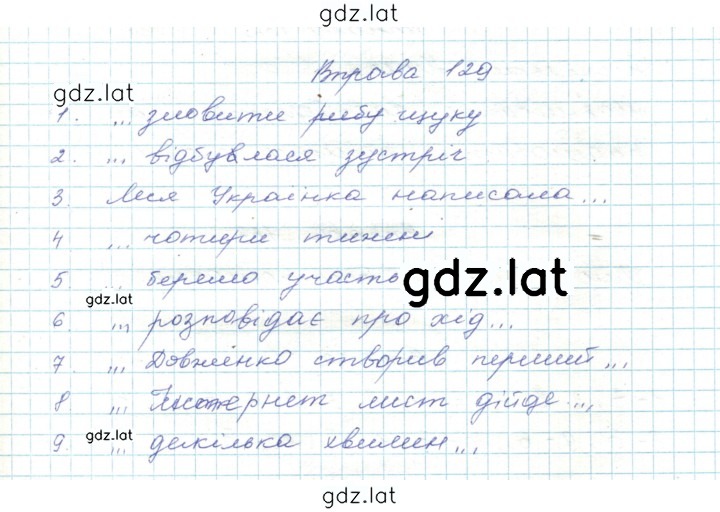 gdz.lat
Вправа 129
gdz.lat
1. ... зловити рибу щуку
2. ... відбувлася зустріч
3. Леся Українка написала...
4 ... чотири тижні
5. ... беремо участь gdz.lat
gdz.lat
6. ... розповідає про хід...
7. ... Довженко створив перший...
8 ... Інтернет лист дійде...
gdz.lat
9. ... декілька хвилин...
gdz.lat